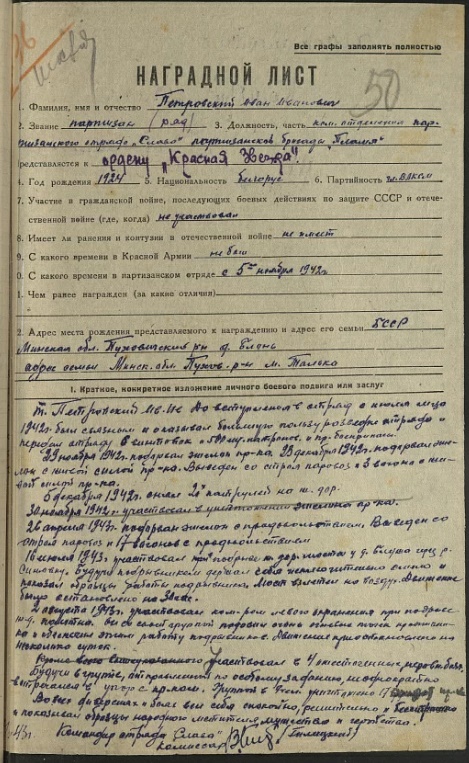 26
50
Все графы заполнять полностью
НАГРАДНОЙ ЛИСТ
1. Фамилия, имя и отчество Петровский Иван Иванович
2. Звание партизан (ряд) 3. Должность, часть ком. отделения пар-
тизанского отряда „Слава" партизанской бригады „Пламя"
представляется к ордену „Красная Звезда".
4. Год рождения 1924 5. Национальность белорус 6. Партийность чл. ВЛКСМ
7. Участие в гражданской войне, последующих боевых действиях по защите СССР и отече-
ственной войне (где, когда) не участвовал
8. Имеет ли ранения и контузии в отечественной войне не имеет
9. С какого времени в Красной Армии не был
0. С какого времени в партизанском отряде с 5го ноября 1942г.
1. Чем ранее награжден (за какие отличия)
2. Адрес места рождения представляемого к награждению и адрес его семьи БССР
Минская обл. Пуховичский р-н д. Блонь
адрес семьи Минск. обл. Пухов. р-н м. Талька
I. Краткое, конкретное изложение личного боевого подвига или заслуг
т. Петровский Ив. Ив. до вступления в отряд с июля м-ца
1942г. был связным и оказывал большую пользу разведке отряда и
передал отряду винтовок патронов и пр. боеприпасы.
29 ноября 1942г. подорвал эшелон пр-ка. 23 декабря 1942г. подорвал эше-
лон с живой силой пр-ка. Выведен со строя паровоз и 5 вагона с жи-
вой силой пр-ка.
5 декабря 1942г. снял 2х патрулей на ж. дор.
30 ноября 1942г. участвовал в уничтожении эшелона пр-ка.
26 апреля 1943г. подорвал эшелон с продовольствием. Выведен со
строя паровоз и 17 вагонов с продовольствием
16 июля 1943г. участвовал при подрыве ж. дор. моста у д. через р.
Синюю. Будучи подрывником держал себя исключительно смело и
показал образцы работы подрывника. Мост взлетел на воздух. Движение
было остановлено на
2 августа 1943г. участвовал ком-ром левого охранения при подрыве
ж.д. полотна. огонь
и обеспечил этим работу подрывников. Движение приостановлено на
несколько суток.
Кроме всего участвовал в 4
Будучи в группе, отправленной по особому заданию, неоднократно
встречался в упор с пр-ком. Группой в уничтожено 17
Во всех вел себя спокойно, решительно и бесстрашно
и показывал образцы народного мстителя, мужества и геройства.
43г. Командир отряда „Слава"
комиссар